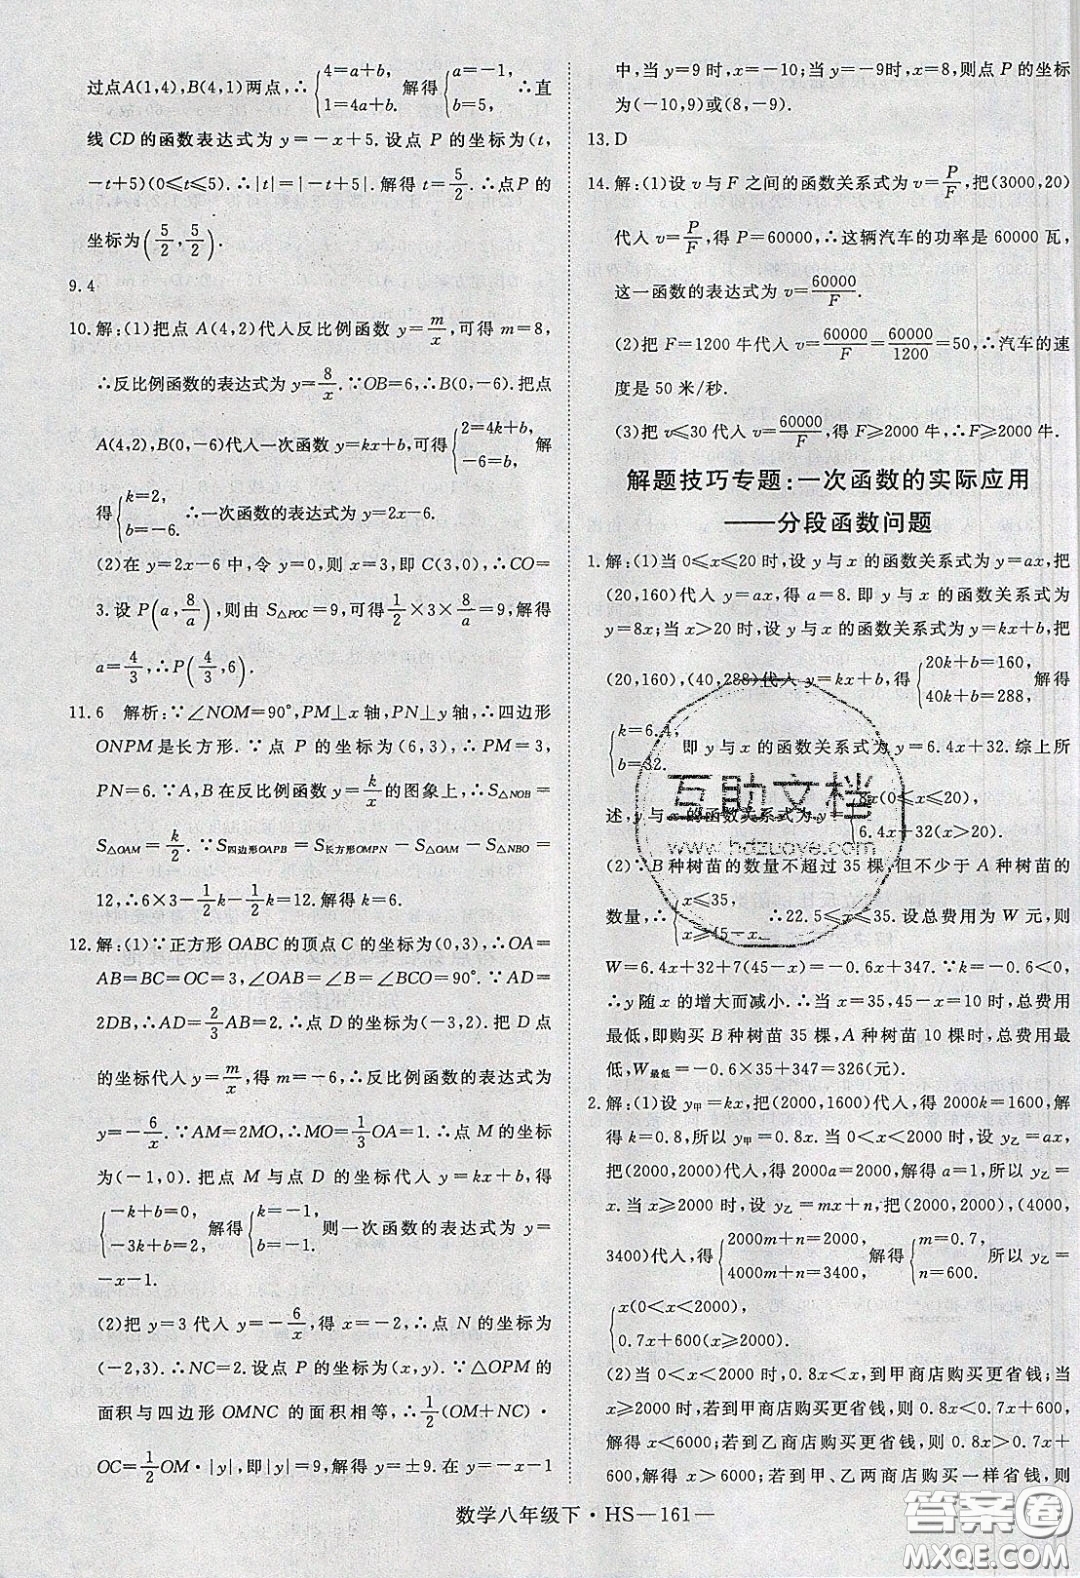 过点A(1,4),B(4,1)两点,∴{4=a+b, 1=4a+b. 解得{a=-1, b=5, ∴直
线 CD 的函数表达式为 y=-x+5. 设点 P 的坐标为(t,
-t+5)(0≤t≤5). ∴|t|=|-t+5|. 解得 t=5/2. ∴点P 的
坐标为(5/2,5/2).
9.4
10.解:(1)把点 A(4,2)代入反比例函数 y=m/x,可得 m=8,
∴反比例函数的表达式为 y=8/x. ∵OB=6,∴B(0,-6). 把点
A(4,2),B(0,-6)代入一次函数 y=kx+b,可得{2=4k+b, -6=b. 解
得{k=2, b=-6. ∴一次函数的表达式为 y=2x-6.
(2)在 y=2x-6 中,令 y=0,则 x=3,即 C(3,0),∴CO=
3. 设 P(a,8/a),则由 S△POC=9,可得 1/2×3×8/a=9,解得
a=4/3,∴P(4/3,6).
11.6 解析:∵∠NOM=90°,PM⊥x 轴,PN⊥y 轴,∴四边形
ONPM 是长方形. ∵点 P 的坐标为(6,3),∴PM=3,
PN=6. ∵A,B 在反比例函数 y=k/x 的图象上,∴S△NOB=
S△OAM=k/2. ∵S四边形OAPB=S长方形OMPN-S△OAM-S△NBO=
12,∴6×3-1/2k-1/2k=12. 解得 k=6.
12.解:(1)∵正方形 OABC 的顶点 C 的坐标为(0,3),∴OA=
AB=BC=OC=3,∠OAB=∠B=∠BCO=90°. ∵AD=
2DB,∴AD=2/3AB=2. ∴点 D 的坐标为(-3,2). 把 D 点
的坐标代入 y=m/x,得 m=-6,∴反比例函数的表达式为
y=-6/x. ∵AM=2MO,∴MO=1/3OA=1. ∴点 M 的坐标
为(-1,0). 把点 M 与点 D 的坐标代入 y=kx+b 中,得
{-k+b=0, -3k+b=2. 解得{k=-1, b=-1. 则一次函数的表达式为 y=
-x-1.
(2)把 y=3 代入 y=-6/x,得 x=-2,∴点 N 的坐标为
(-2,3). ∴NC=2. 设点 P 的坐标为(x,y). ∵△OPM 的
面积与四边形 OMNC 的面积相等,∴1/2(OM+NC)·
OC=1/2OM·|y|,即|y|=9,解得 y=±9. 在 y=-x-1
中,当 y=9 时,x=-10;当 y=-9时,x=8,则点 P 的坐标
为(-10,9)或(8,-9).
13.D
14.解:(1)设 v 与 F 之间的函数关系式为 v=P/F,把(3000,20)
代入 v=P/F,得 P=60000,∴这辆汽车的功率是 60000 瓦,
这一函数的表达式为 v=60000/F.
(2)把 F=1200 牛代入 v=60000/F=60000/1200=50,∴汽车的速
度是 50 米/秒.
(3)把 v≤30 代入 v=60000/F,得 F≥2000 牛,∴F≥2000 牛.
解题技巧专题:一次函数的实际应用
——分段函数问题
1.解:(1)当 0≤x≤20 时,设 y 与 x 的函数关系式为 y=ax,把
(20,160)代入 y=ax,得 a=8. 即 y 与 x 的函数关系式为
y=8x;当 x>20 时,设 y 与 x 的函数关系式为 y=kx+b,把
(20,160),(40,288)代入 y=kx+b,得{20k+b=160, 40k+b=288. 解得
{k=6.4, b=32. 即 y 与 x 的函数关系式为 y=6.4x+32. 综上所
述,y 与 x 的函数关系式为 y={8x(0≤x≤20), 6.4x+32(x>20).
(2)∵B 种树苗的数量不超过 35 棵,但不少于 A 种树苗的
数量,∴{x≤35, x≥45-x. ∴22.5≤x≤35. 设总费用为 W 元,则
W=6.4x+32+7(45-x)=-0.6x+347. ∵k=-0.6<0,
∴y 随 x 的增大而减小. ∴当 x=35,45-x=10 时,总费用
最低,即购买 B 种树苗 35 棵,A 种树苗 10 棵时,总费用最
低,W最低=-0.6×35+347=326(元).
2.解:(1)设 y甲=kx,把(2000,1600)代入,得 2000k=1600,解
得 k=0.8,所以 y甲=0.8x. 当 0<x<2000 时,设 y乙=ax,
把(2000,2000)代入,得 2000a=2000,解得 a=1,所以 y乙=
x. 当 x≥2000 时,设 y乙=mx+n,把(2000,2000),(4000,
3400)代入,得{2000m+n=2000, 4000m+n=3400. 解得{m=0.7, n=600. 所以 y乙=
{x(0<x<2000), 0.7x+600(x≥2000).
(2)当 0<x<2000 时,0.8x<x,到甲商店购买更省钱;当
x≥2000 时,若到甲商店购买更省钱,则 0.8x<0.7x+600,
解得 x<6000;若到乙商店购买更省钱,则 0.8x>0.7x+
600,解得 x>6000;若到甲、乙两商店购买一样省钱,则
数学八年级下·HS—161—
互助文档
www.hdzuoye.com
答案圈
MXQE.COM